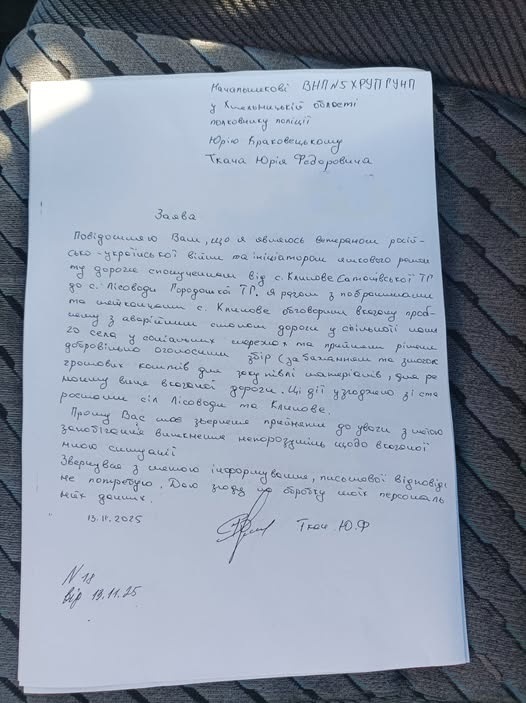 Начальникові ВНП №5 ХРУП ГУНП
у Хмельницькій області
полковнику поліції
Юрію Краковецькому
Ткача Юрія Федоровича
Заява
Повідомляю Вам, що я являюсь ветераном росій-
сько-української війни та ініціатором ямкового ремон
ту дороги сполученням від с. Климове Сатанівської ТГ
до с. Лісоводи Городоцької ТГ. Я разом з побратимами
та мешканцями с. Климове обговорили вказану проб-
лему з аварійним станом дороги у спільноті нашо
го села у соціальних мережах та прийняли рішення
добровільно оголосити збір (за бажанням та змогою)
грошових коштів для закупівлі матеріалів, для ре
монту вище вказаної дороги. Ці дії узгоджено зі ста
ростами сіл Лісоводи та Климове.
Прошу Вас моє звернення прийняти до уваги з метою
запобігання виникнення непорозумінь щодо вказаної
мною ситуації
Звернувся з метою інформування, письмової відповіді
не потребую. Даю згоду на обробку моїх персональ
них даних.
13.11.2025 Ткач Ю.Ф
N 18
від 13.11.25